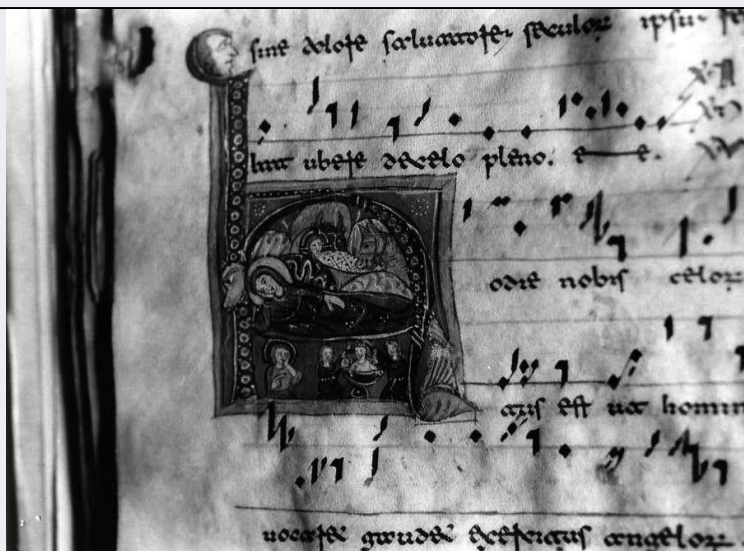 sine dolore saluatore seculor ipsu
ubere de celo pleno. e e.
odie nobis celor
atus est ut homin
uocaret gaudet exercitus angelor